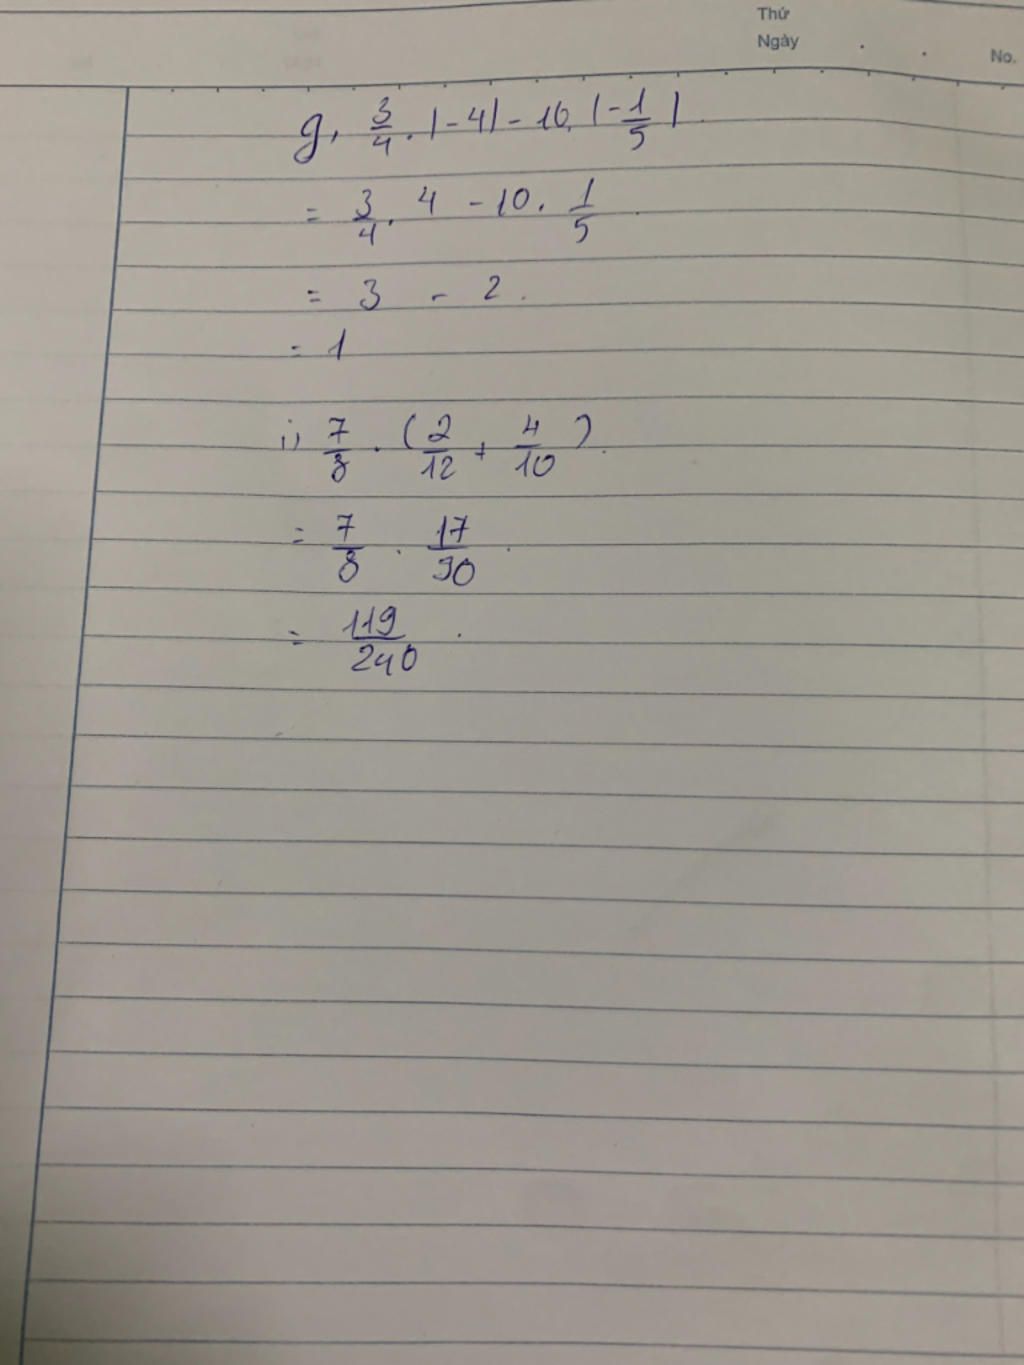 Thứ
Ngày . .
No.
g, 3/4 . |-4| - 10. |-1/5|
= 3/4 . 4 - 10 . 1/5
= 3 - 2.
= 1
i) 7/8 . (2/12 + 4/10).
= 7/8 . 17/30 .
= 119/240 .